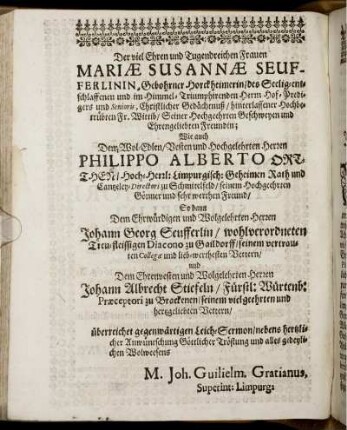 Der viel Ehren und Tugendreichen Frauen
MARIÆ SUSANNÆ SEUF-
FERLININ, Gebohrner Hortheimerin/ des Seelig ent-
schlaffenen und im-Himmel-Triumphirenden Herrn Hof-Predi-
gers und Senioris, Christlicher Gedächtnuß/ hinterlassener Hochbe-
trübten Fr. Wittib/ Seiner Hochgeehrten Geschweyen und
Ehrengeliebten Freundin;
Wie auch
Dem Wol-Edlen/ Vesten und Hochgelehrten Herren
PHILIPPO ALBERTO ORT-
Hoch-Herrl: Limpurgisch: Geheimen Rath und
Cantzley-Directori zu Schmitelfeld/ seinem Hochgeehrten
Gönner und sehr werthen Freund/
So dann
Dem Ehrwürdigen und Wolgelehrten Herren
Johann Georg Seufferlin/ wohlverordneten
Treu-fleissigen Diacono zu Gaildorff/ seinem vertrau-
ten Collegæ und lieb-werthesten Vettern/
und
Dem Ehrnvesten und Wolgelehrten Herren
Johann Albrecht Stiefeln/ Fürstl: Würtenb:
Præceptori zu Brackenen/ seinem viel geehrten und
hertzgeliebten Vettern/
überreichet gegenwärtigen Leich-Sermon/ nebens hertzli-
cher Anwünschung Göttlicher Tröstung und alles gedeyli-
chen Wolwesens
M. Joh. Guilielm. Gratianus,
Superint: Limpurg: